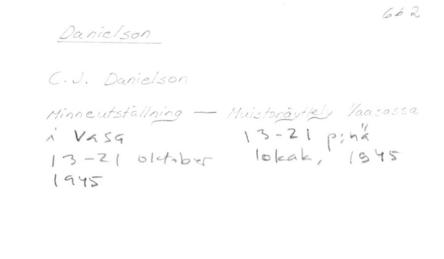 6b2
Danielson
C.J. Danielson
Minneutställning — Muistonäyttely Vaasassa
i Vasa 13-21 p:nä
13-21 oktober lokak, 1945
1945